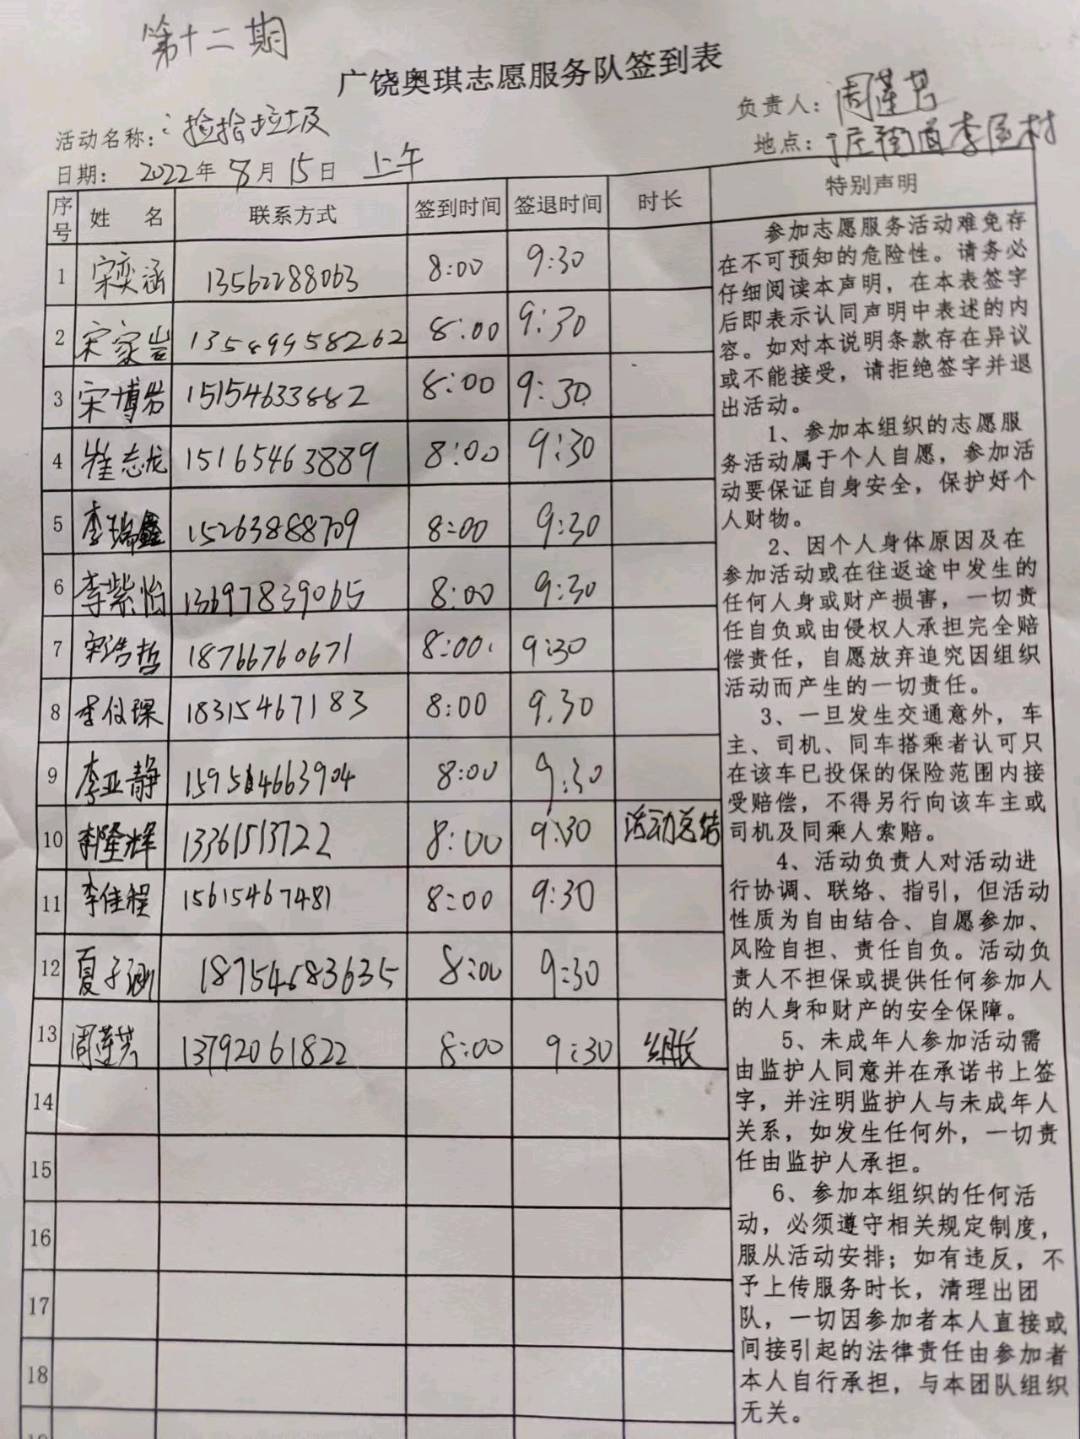 第十二期
广饶奥琪志愿服务队签到表
活动名称：捡拾垃圾
负责人：周莲芳
日期： 2022年 8月 15日 上午
地点： 街道李屋村
序号 姓 名 联系方式 签到时间 签退时间 时长 特别声明
1 宋奕涵 13562288063 8:00 9:30
2 宋家岂 13589958262 8:00 9:30
3 宋博 15154633882 8:00 9:30
4 崔志龙 15165463889 8:00 9:30
5 李瑞鑫 15263888709 8:00 9:30
6 李紫怡 13697839065 8:00 9:30
7 宋浩哲 18766760671 8:00 9:30
8 李仪琛 18315467183 8:00 9.30
9 李亚静 15954663904 8:00 9:30
10 李隆辉 13361513722 8:00 9:30 活动总结
11 李佳程 15615467481 8:00 9:30
12 夏子涵 18754683635 8:00 9:30
13 周莲芳 13792061822 8:00 9:30 组长
14
15
16
17
18
参加志愿服务活动难免存
在不可预知的危险性。请务必
仔细阅读本声明，在本表签字
后即表示认同声明中表述的内
容。如对本说明条款存在异议
或不能接受，请拒绝签字并退
出活动。
1、参加本组织的志愿服
务活动属于个人自愿，参加活
动要保证自身安全，保护好个
人财物。
2、因个人身体原因及在
参加活动或在往返途中发生的
任何人身或财产损害，一切责
任自负或由侵权人承担完全赔
偿责任，自愿放弃追究因组织
活动而产生的一切责任。
3、一旦发生交通意外，车
主、司机、同车搭乘者认可只
在该车已投保的保险范围内接
受赔偿，不得另行向该车主或
司机及同乘人索赔。
4、活动负责人对活动进
行协调、联络、指引，但活动
性质为自由结合、自愿参加、
风险自担、责任自负。活动负
责人不担保或提供任何参加人
的人身和财产的安全保障。
5、未成年人参加活动需
由监护人同意并在承诺书上签
字，并注明监护人与未成年人
关系，如发生任何外，一切责
任由监护人承担。
6、参加本组织的任何活
动，必须遵守相关规定制度，
服从活动安排；如有违反，不
予上传服务时长，清理出团
队，一切因参加者本人直接或
间接引起的法律责任由参加者
本人自行承担，与本团队组织
无关。